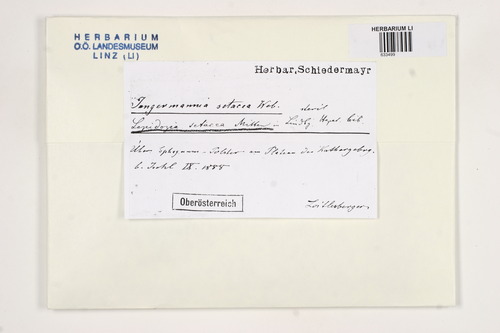 HERBARIUM
O.Ö. LANDESMUSEUM
LINZ (LI)
HERBARIUM LI
Herbar, Schiedermayr
Jungermannia setacea Web.
Lepidozia setacea Mitten
Über Sphagnum - Polster am Plateau des
b. Ischl IX. 1885
Oberösterreich
Loitlesberger